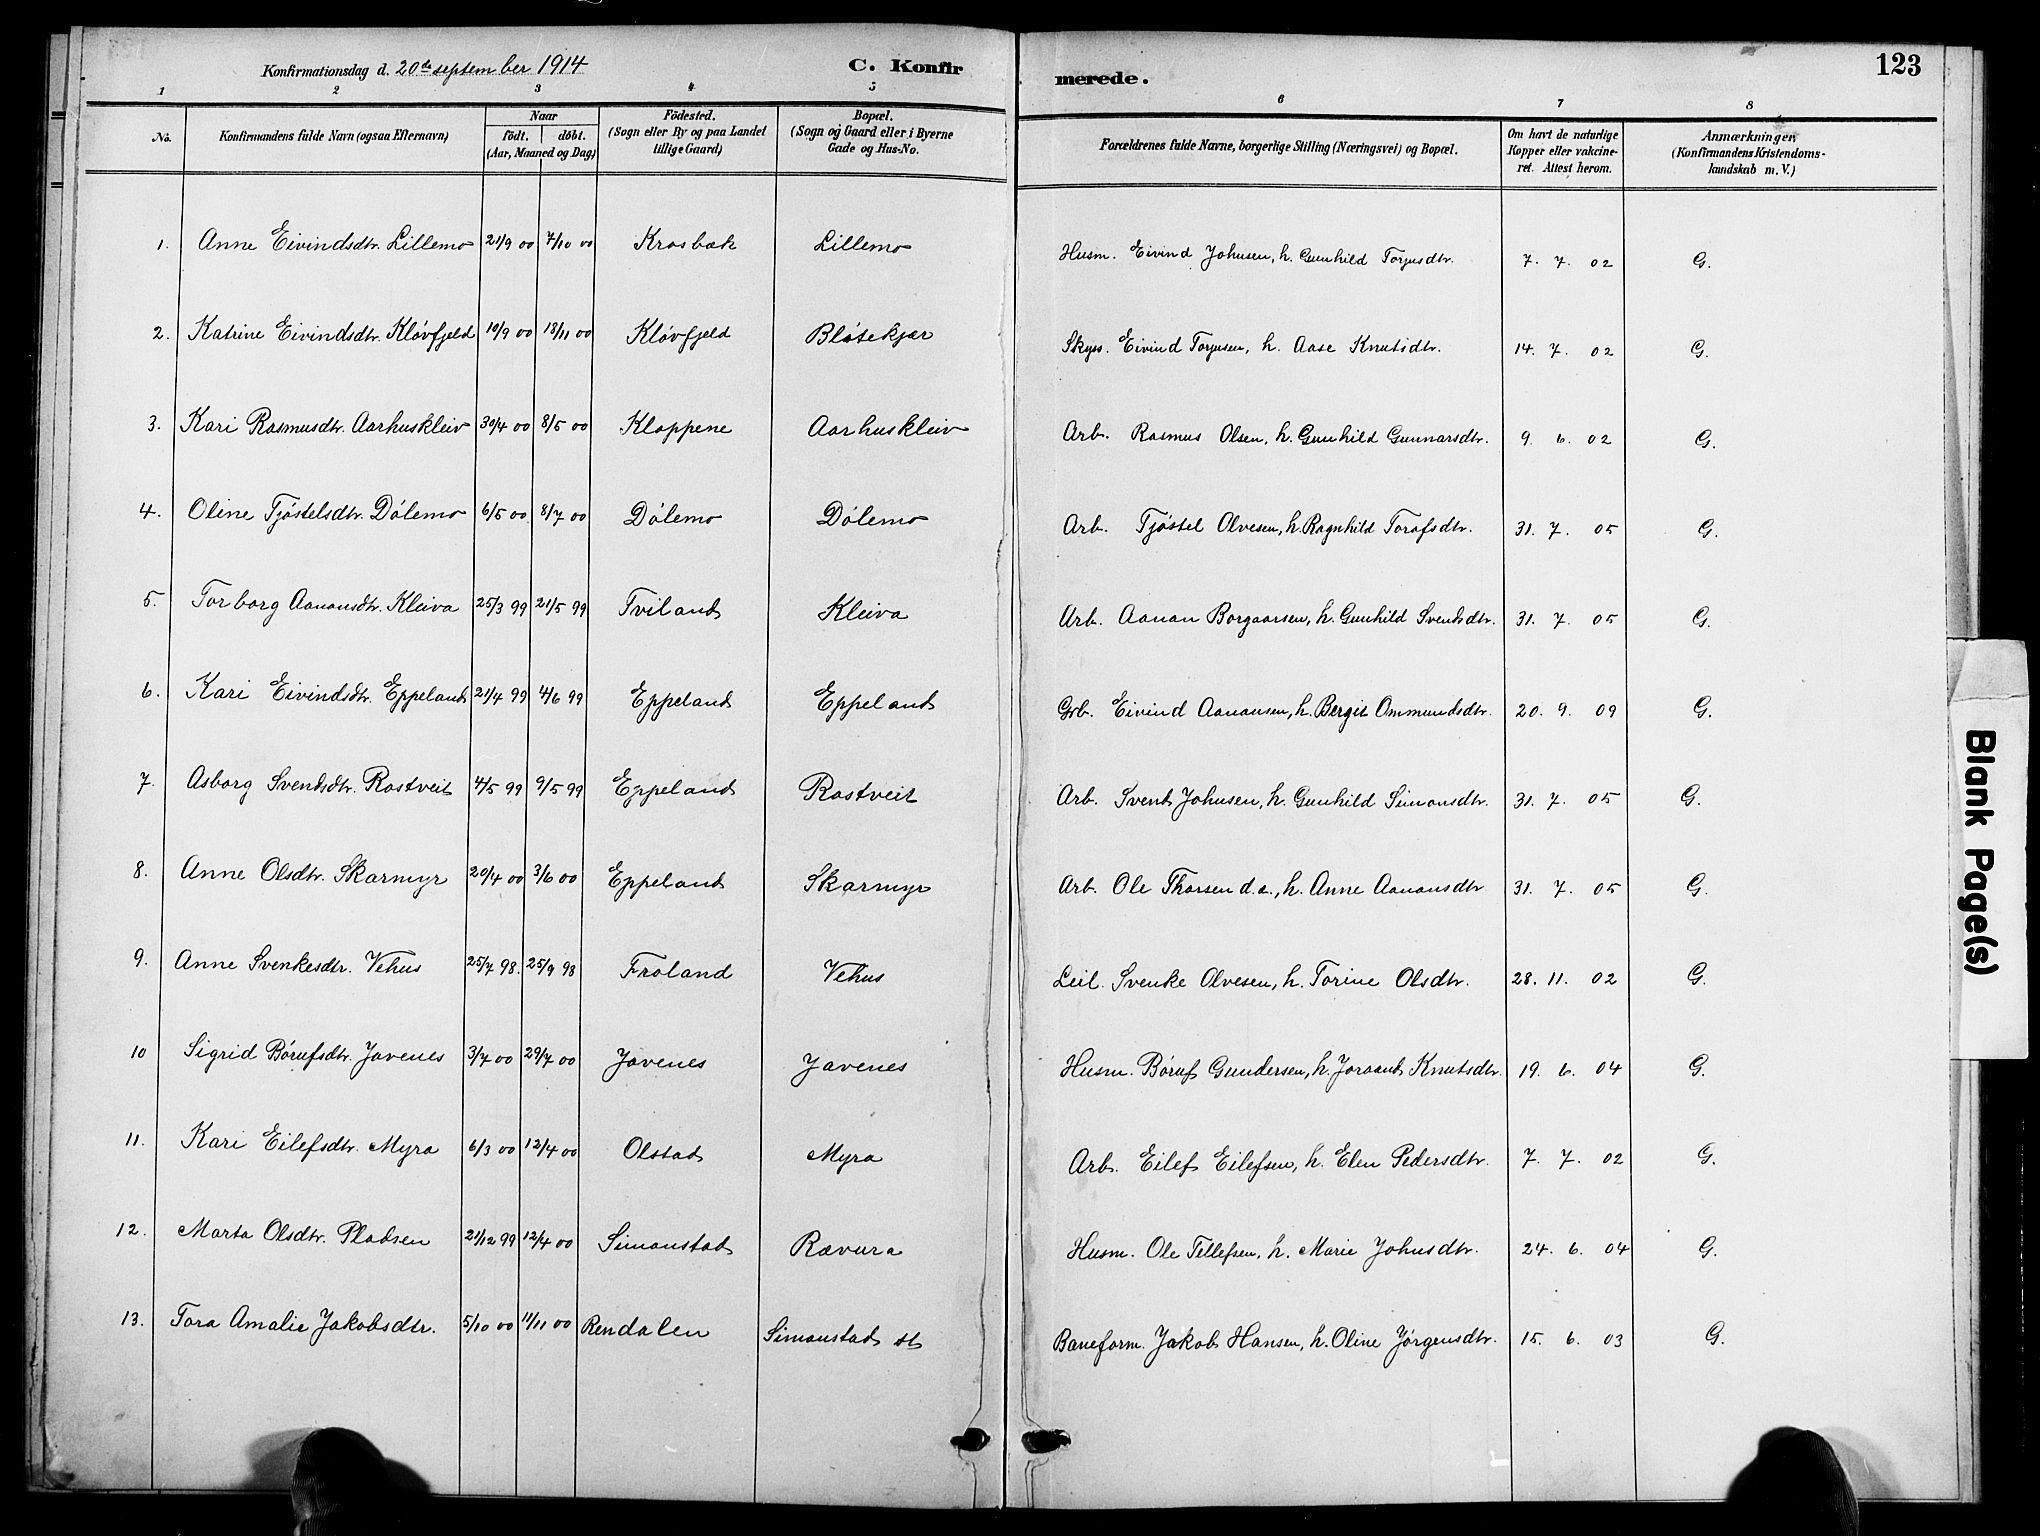 Konfirmationsdag d. 20de september 1914 C. Konfir merede. 123
1 2 3 4 5 6 7 8
No. Konfirmandens fulde Navn (ogsaa Efternavn) Naar født. døbt. (Aar, Maaned og Dag) Födested. (Sogn eller By og paa Landet tillige Gaard) Bopæl. (Sogn og Gaard eller i Byerne Gade og Hus-No. Forældrenes fulde Navne, borgerlige Stilling (Næringsvei) og Bopæl. Om havt de naturlige Kopper eller vakcineret. Attest herom. Anmærkninger (Konfirmandens Kristendomskundskab m. V.)
1. Anne Eivindsdtr. Lillemo 21/9 00 7/10 00 Krosbæk Lillemo Husm. Eivind Johnsen, h. Gunhild Torjusdtr. 7. 7. 02 G.
2. Katrine Eivindsdtr. Kløvfjeld 10/9 00 18/11 00 Kløvfjeld Bløtekjær Skyss. Eivind Torjusen, h. Aase Knutsdtr. 14. 7. 02 G.
3. Kari Rasmusdtr. Aarhuskleiv 30/4 00 8/5 00 Kloppene Aarhuskleiv Arb. Rasmus Olsen, h. Gunhild Gunnarsdtr. 9. 6. 02 G.
4. Oline Tjøstelsdtr. Dølemo 6/5 00 8/7 00 Dølemo Dølemo Arb. Tjøstel Olvesen, h. Ragnhild Torafsdtr. 31. 7. 05 G.
5. Torborg Aanonsdtr. Kleiva 25/3 99 21/5 99 Tviland Kleiva Arb. Aanon Borgaarsen, h. Gunhild Svendsdtr. 31. 7. 05 G.
6. Kari Eivindsdtr. Eppeland 21/4 99 4/6 99 Eppeland Eppeland Grb. Eivind Aanonsen, h. Bergit Ommundsdtr. 20. 9. 09 G.
7. Asborg Svendsdtr. Rostveit 4/5 99 9/5 99 Eppeland Rostveit Arb. Svend Johnsen, h. Gunhild Simonsdtr. 31. 7. 05 G.
8. Anne Olsdtr. Skarmyr 20/4 00 3/6 00 Eppeland Skarmyr Arb. Ole Thorsen d.e., h. Anne Aanonsdtr 31. 7. 05 G.
9. Anne Svenkesdtr. Vehus 25/7 98. 25/9 98 Froland Vehus Leil. Svenke Olvesen, h. Torine Olsdtr. 28. 11. 02 G.
10 Sigrid Børufsdtr. Jovenes 3/7 00 29/7 00 Jovenes Jovenes Husm. Børuf Gundersen, h. Joraand Knutsdtr. 19. 6. 04 G.
11. Kari Eilefsdtr. Myra 6/3 00 12/4 00 Olstad Myra Arb. Eilef Eilefsen, h. Elen Pedersdtr. 7. 7. 02 G.
12. Marta Olsdtr. Pladsen 21/12 99 12/4 00 Simonstad Rævura Husm. Ole Tellefsen, h. Marie Johnsdtr. 24. 6. 04 G.
13. Tora Amalie Jakobsdtr. 5/10 00 11/11 00 Rendalen Simonstad st Baneform. Jakob Hansen, h. Oline Jørgensdtr. 15. 6. 03 G.
Blank Page(s)